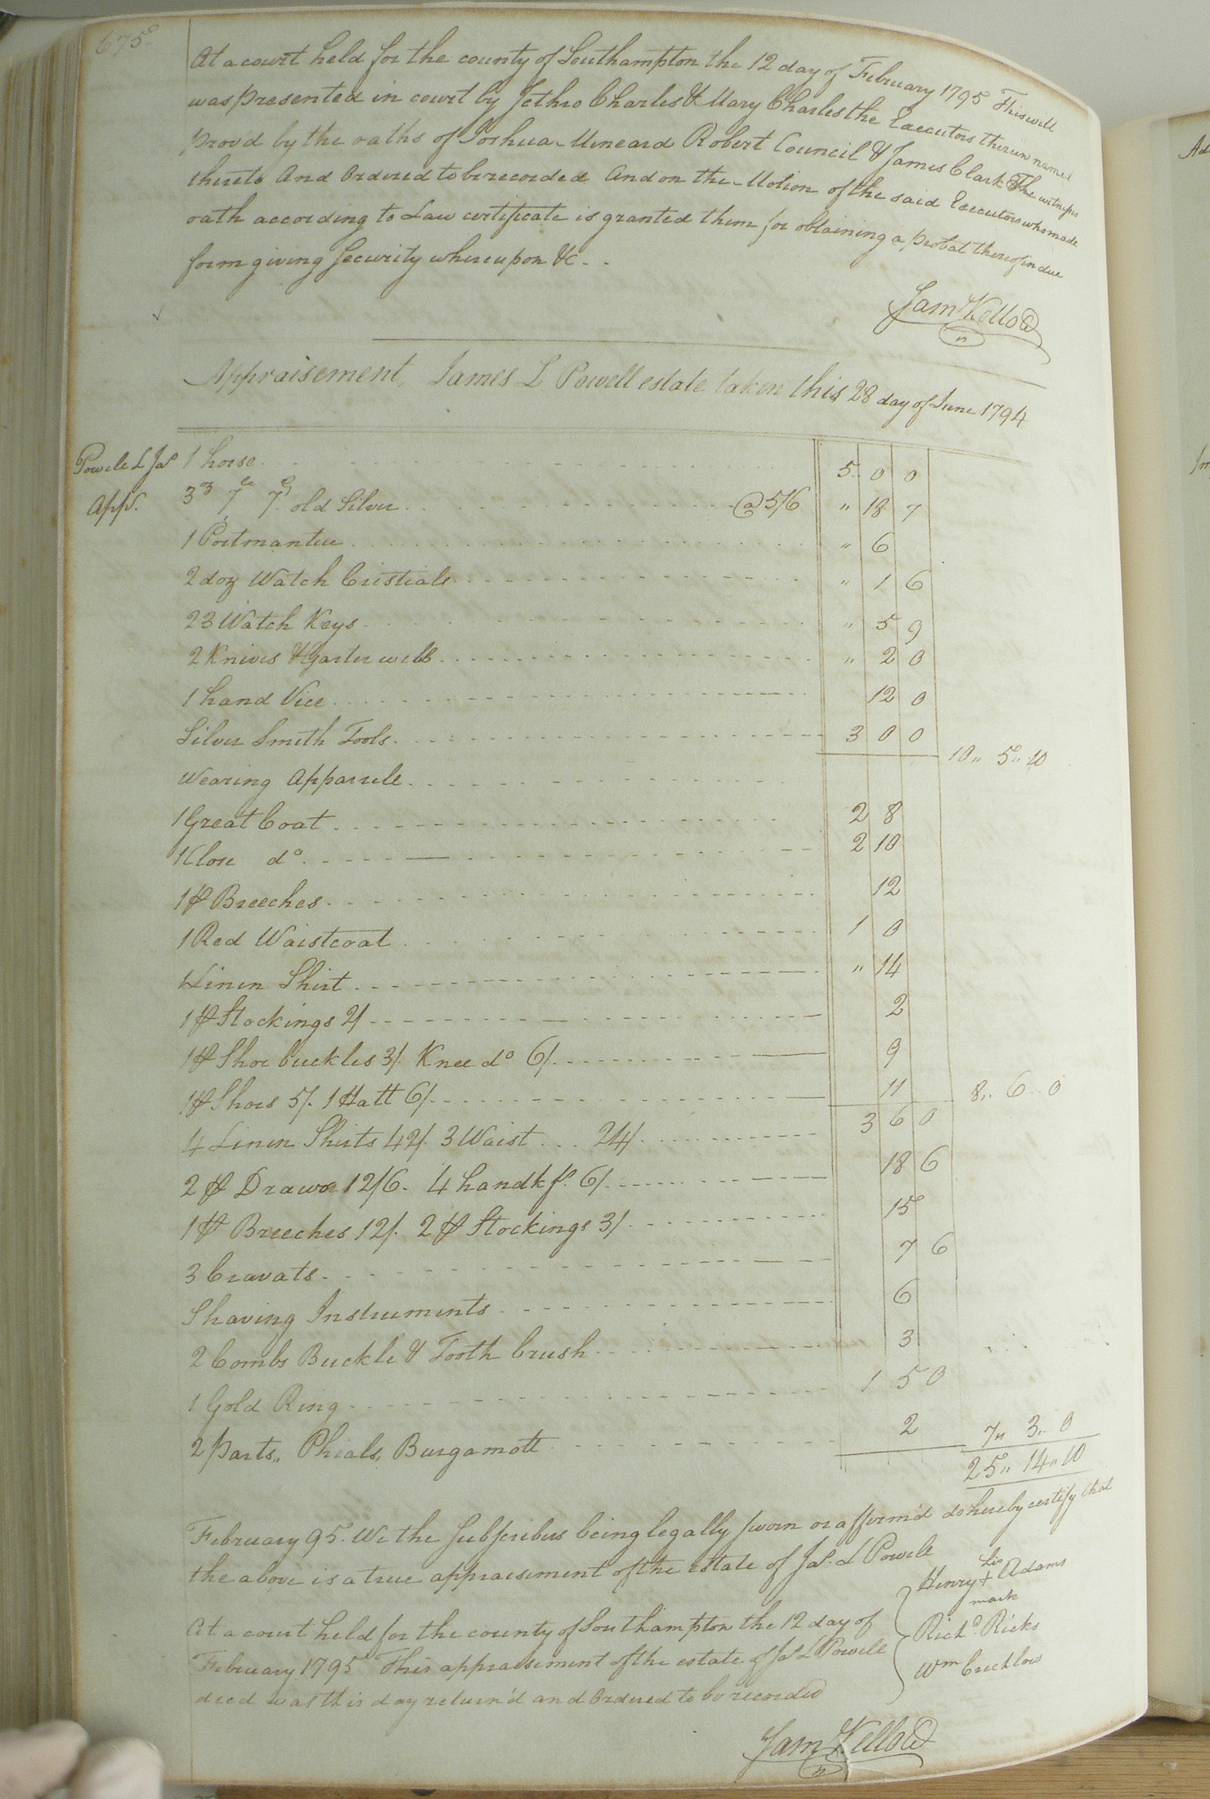 675
At a court held for the county of Southampton the 12 day of February 1795 This will
was presented in court by Jethro Charles & Mary Charles the Executors therein named
prov'd by the oaths of Joshua Mineard Robert Council & James Clark The witness
thereto And Ordered to be recorded And on the Motion of the said Executors who made
oath according to Law certificate is granted them for obtaining a probat thereof in due
form giving Security whereupon &c - -
Sam Kello CC
Appraisement, James L Powell estate taken this 28 day of June 1794
Powele L Jas 1 horse 5 0 0
App. 3 7 7 old Silver @ 5/6 " 18 7
1 Portmantue " 6
2 doz Watch Cristials " 1 6
23 Watch Keys " 5 9
2 Knives & Garter webb " 2 0
1 hand Vice 12 0
Silver Smith Tools 3 0 0
10 " 5 " 10
Wearing Apparrele
1 Great Coat 2 8
1 Close do 2 10
1 pr Breeches 12
1 Red Waistcoat 1 0
1 Linin Shirt " 14
1 pr Stockings 2/ 2
1 pr Shoe buckles 3/. Knee do 6/. 9
1 pr Shoes 5/. 1 Hatt 6/. 11 8 " 6 " 0
4 Linin Shirts 42/. 3 Waist 24/. 3 6 0
2 pr Drawers 12/6. 4 handkfs. 6/. 18 6
1 pr Breeches 12/. 2 pr Stockings 3/. 15
3 Cravats 7 6
Shaving Instruments 6
2 Combs Buckle & Tooth brush 3
1 Gold Ring 1 5 0
2 parts, Phials, Burgamott 2 7 " 3 " 0
25 " 14 " 10
February 95. We the Subscribers being legally sworn or afferm'd do hereby certify that
the above is a true appraisement of the estate of Jas. L Powele
Henry his + mark Adams
Richd. Ricks
Wm Crichlow
At a court held for the county of Southampton the 12 day of
February 1795 This appraisement of the estate of Jas L Powele
decd was this day return'd and Ordered to be recorded
Sam Kello CC